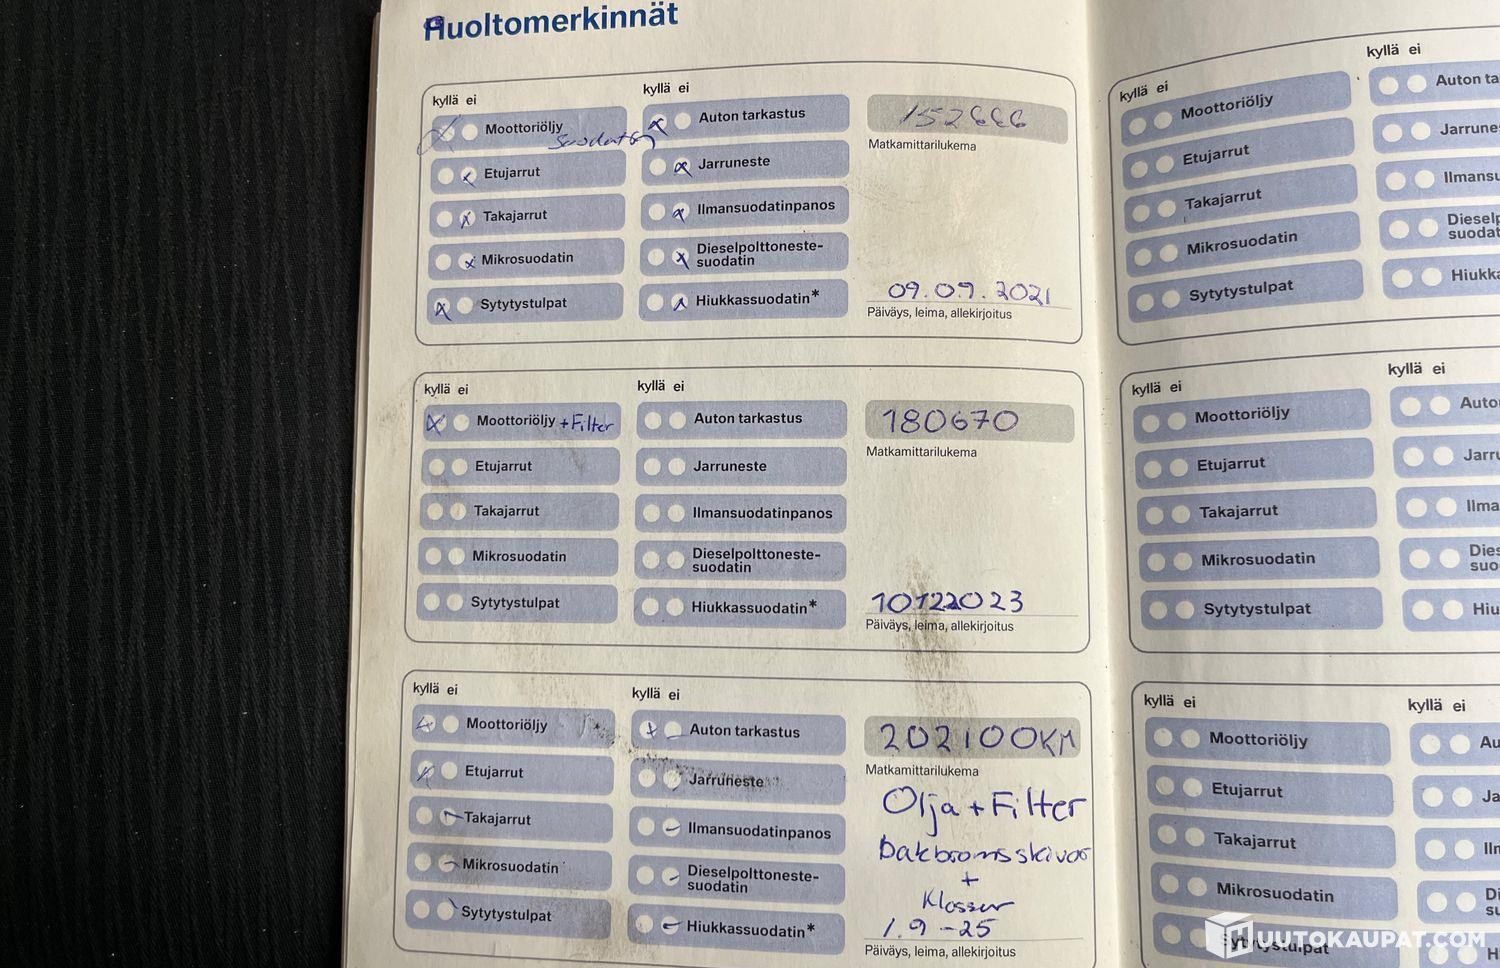 Huoltomerkinnät
kyllä ei
Moottoriöljy
Etujarrut
Takajarrut
Mikrosuodatin
Sytytystulpat
kyllä ei
Auton tarkastus
Jarruneste
Ilmansuodatinpanos
Dieselpolttoneste-
suodatin
Hiukkassuodatin*
152666
Matkamittarilukema
09.09.2021
Päiväys, leima, allekirjoitus
kyllä ei
Moottoriöljy +Filter
Etujarrut
Takajarrut
Mikrosuodatin
Sytytystulpat
kyllä ei
Auton tarkastus
Jarruneste
Ilmansuodatinpanos
Dieselpolttoneste-
suodatin
Hiukkassuodatin*
180670
Matkamittarilukema
10122023
Päiväys, leima, allekirjoitus
kyllä ei
Moottoriöljy
Etujarrut
Takajarrut
Mikrosuodatin
Sytytystulpat
kyllä ei
Auton tarkastus
Jarruneste
Ilmansuodatinpanos
Dieselpolttoneste-
suodatin
Hiukkassuodatin*
202100KM
Matkamittarilukema
Olja + Filter
Bakbromsskivor
+
Klossar
1.9-25
Päiväys, leima, allekirjoitus
kyllä ei
Moottoriöljy
Etujarrut
Takajarrut
Mikrosuodatin
Sytytystulpat
kyllä ei
Auton ta
Jarrune
Ilmansu
Dieselp
suodat
Hiukka
kyllä ei
Moottoriöljy
Etujarrut
Takajarrut
Mikrosuodatin
Sytytystulpat
kyllä ei
Auto
Jarru
Ilma
Dies
suo
Hiu
kyllä ei
Moottoriöljy
Etujarrut
Takajarrut
Mikrosuodatin
Sytytystulpat
kyllä ei
Au
Ja
Iln
Di
su
H
HUUTOKAUPAT.COM